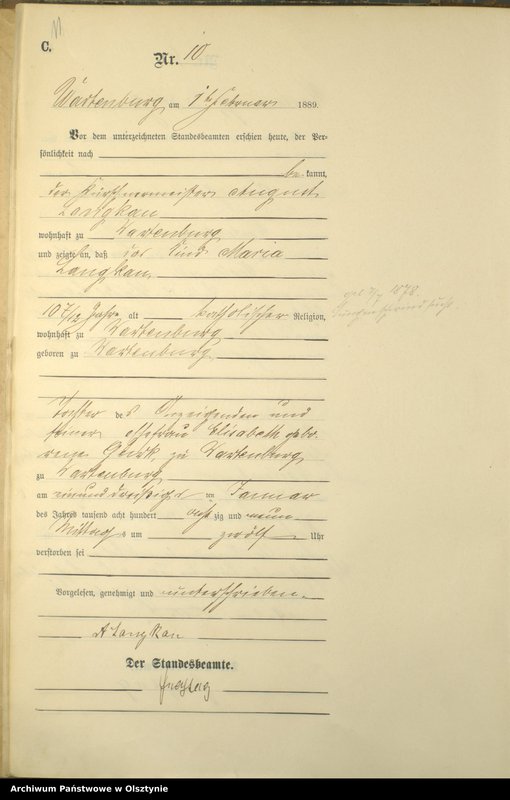 C.
Nr. 10
Wartenburg am 1ten Februar 1889.
Vor dem unterzeichneten Standesbeamten erschien heute, der Per-
sönlichkeit nach
be kannt,
der Kürschnermeister August
Langkau
wohnhaft zu Wartenburg
und zeigte an, daß das Kind Maria
Langkau
10 7/12 Jahre alt katholischer Religion,
wohnhaft zu Wartenburg
geboren zu Wartenburg
Tochter des Anzeigenden und
seiner Ehefrau Elisabeth gebo
rene zu Wartenburg
zu Wartenburg
am einunddreißigsten Januar
des Jahres tausend acht hundert achtzig und neun
Mittags um zwölf Uhr
verstorben sei
Vorgelesen, genehmigt und unterschrieben.
A Langkau
Der Standesbeamte.
Freytag
1878
Archiwum Państwowe w Olsztynie